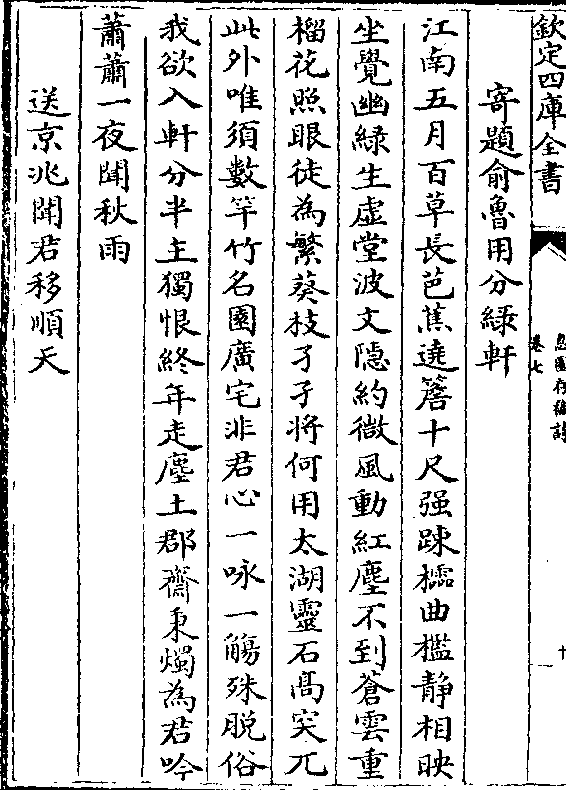 欽定四庫全書
息園存稿詩
卷七
十
寄題俞魯用分緑軒
江南五月百草長芭蕉遶簷十尺强踈櫺曲檻靜相映
坐覺幽緑生虛堂波文隱約微風動紅塵不到蒼雲重
榴花照眼徒為繁葵枝孑孑將何用太湖靈石髙突兀
此外唯須數竿竹名園廣宅非君心一咏一觴殊脱俗
我欲入軒分半主獨恨終年走塵土郡齋秉燭為君吟
蕭蕭一夜聞秋雨
送京兆聞君移順天